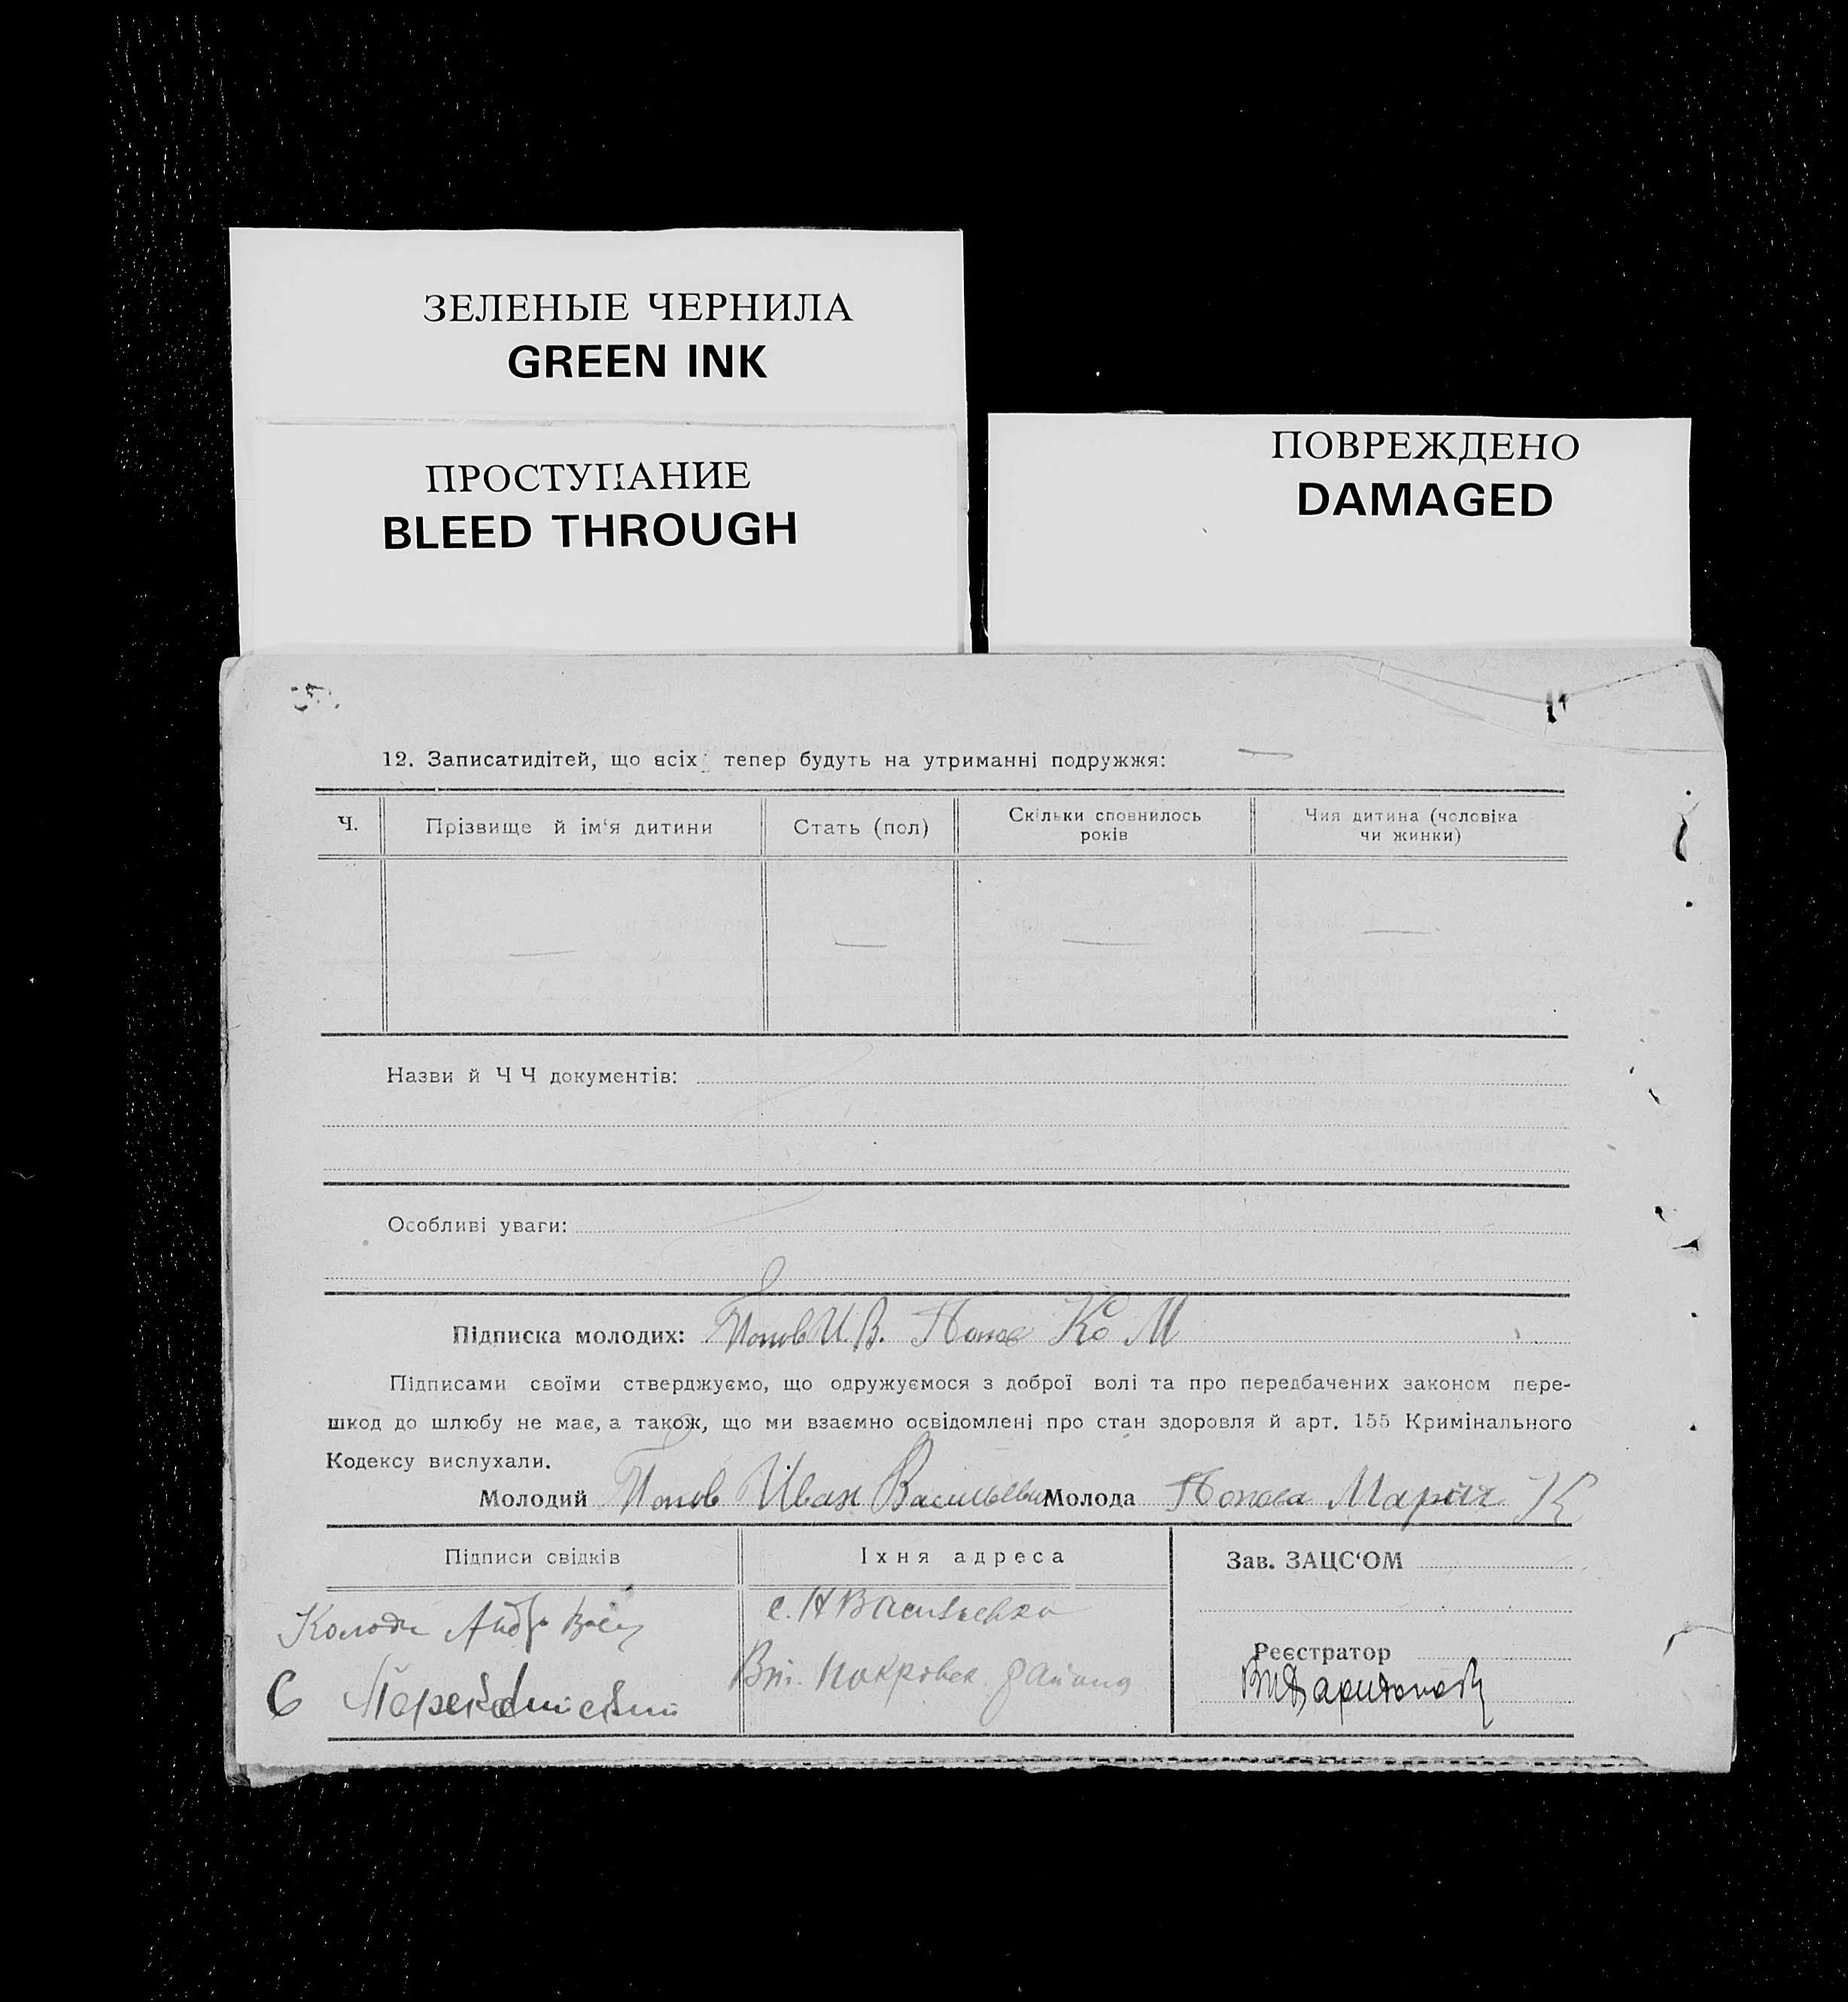 ЗЕЛЕНЫЕ ЧЕРНИЛА
GREEN INK
ПРОСТУПАНИЕ
BLEED THROUGH
ПОВРЕЖДЕНО
DAMAGED
12. Записатидітей, що всіх тепер будуть на утриманні подружжя: —
Ч.
Прізвище й ім‘я дитини
Стать (пол)
Скільки сповнилось
років
Чия дитина (чоловіка
чи жинки)
— — — —
Назви й Ч Ч документів:
Особливі уваги:
Підписка молодих: Попов И. В. М
Підписами своїми стверджуємо, що одружуємося з доброї волі та про передбачених законом пере-
шкод до шлюбу не має, а також, що ми взаємно освідомлені про стан здоровля й арт. 155 Кримінального
Кодексу вислухали.
Молодий Попов Иван Васильевич Молода Попова Мария К
Підписи свідків
Їхня адреса
Зав. ЗАЦС‘ОМ
с. Н Васильевка
Реєстратор
Покровск. района